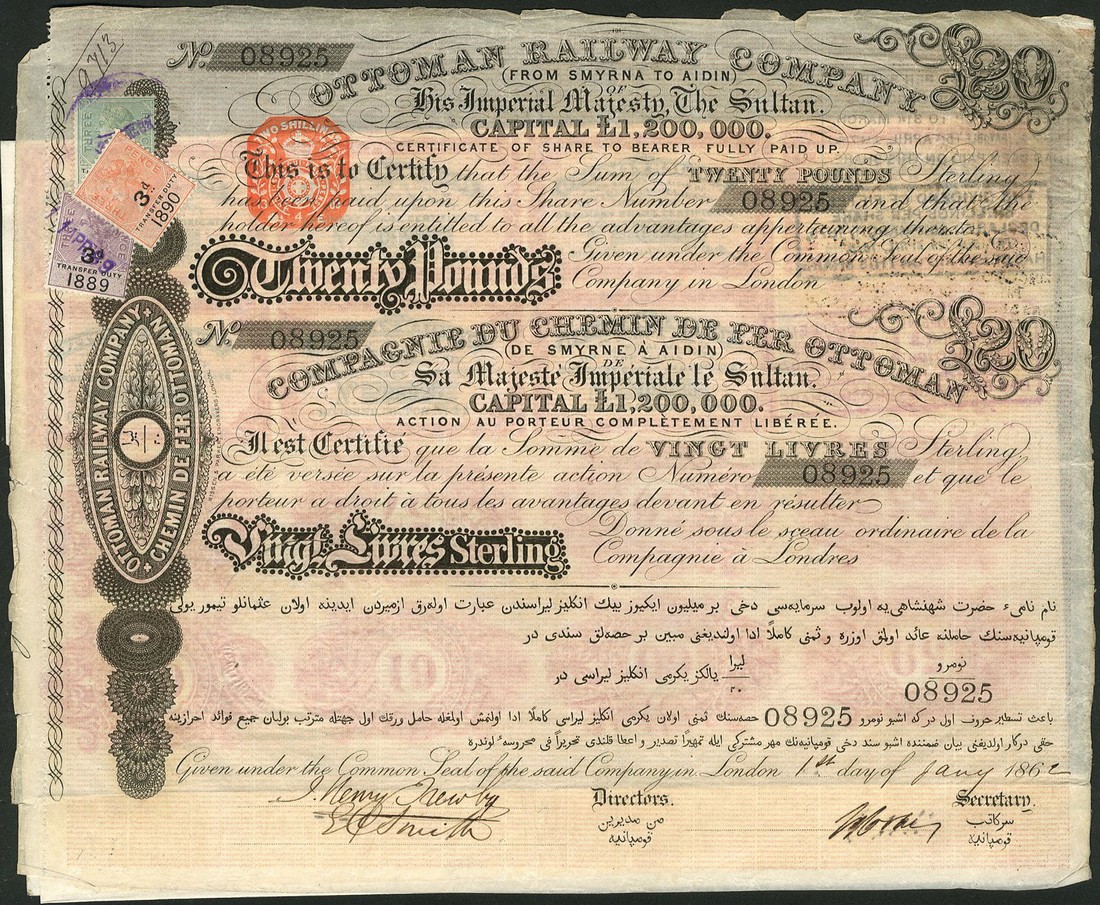 No. 08925
OTTOMAN RAILWAY COMPANY
(FROM SMYRNA TO AIDIN)
OF
His Imperial Majesty, The Sultan.
CAPITAL Ł1,200,000.
CERTIFICATE OF SHARE TO BEARER FULLY PAID UP.
£20
This is to Certify that the Sum of TWENTY POUNDS Sterling
has been paid upon this Share Number 08925 and that the
holder hereof is entitled to all the advantages appertaining thereto.
Twenty Pounds
Given under the Common Seal of the said
Company in London
TWO SHILLINGS
THREE
3d
TRANSFER DUTY
1890
TRANSFER DUTY
1889
No. 08925
COMPAGNIE DU CHEMIN DE FER OTTOMAN
(DE SMYRNE À AIDIN)
DE
Sa Majesté Impériale le Sultan.
CAPITAL Ł1,200,000.
ACTION AU PORTEUR COMPLÈTEMENT LIBÉRÉE.
£20
Il est Certifié que la Somme de VINGT LIVRES Sterling,
a été versée sur la présente action Numéro 08925 et que le
porteur a droit à tous les avantages devant en résulter
Vingt Livres Sterling
Donné sous le sceau ordinaire de la
Compagnie à Londres
OTTOMAN RAILWAY COMPANY
CHEMIN DE FER OTTOMAN
نام نامیء حضرت شهنشاهی یه اولوب سرمایه‌سی دخی بر میلیون ایکیوز بیك انکلیز لیراسندن عبارت اوله‌رق ازمیردن ایدینه اولان عثمانلو تیمور یولی
قومپانیه‌سنك حاملنه عائد اولمق اوزره و ثمنی کاملاً ادا اولندیغنی مبین بر حصه‌لق سندی در
نومرو
08925
لیرا
٢٠
یالکز یکرمی انکلیز لیراسی در
باعث تسطیر حروف اول درکه اشبو نومرو 08925 حصه‌سنك ثمنی اولان یکرمی انکلیز لیراسی کاملاً ادا اولنمش اولمغله حامل ورقك اول جهتله مترتب بولنان جمیع فوائد احرازینه
حقی درکار اولدیغنی بیان ضمننده اشبو سند دخی قومپانیه‌نك مهر مشترکی ایله تمهیراً تصدیر و اعطا قلندی تحریراً فی محروسهٔ لوندره
Given under the Common Seal of the said Company in London 1st day of Jany 1862
Directors.
من مدیرین
قومپانیه
E C Smith
Secretary.
سرکاتب
قومپانیه